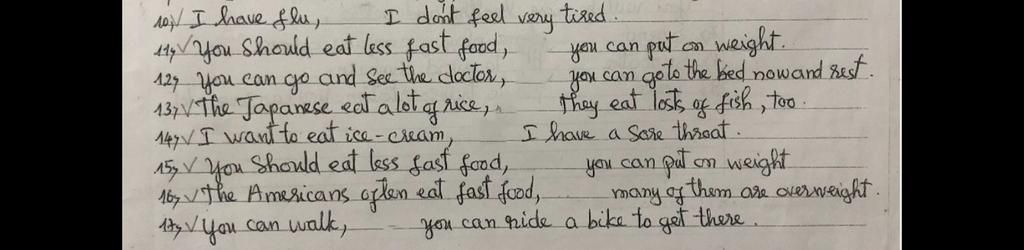 10, √ I have flu, I dont feel very tired.
11, √ You should eat less fast food, you can put on weight.
12, you can go and see the doctor, you can go to the bed now and rest.
13, √ The Japanese eat a lot of rice, they eat losts of fish, too.
14, √ I want to eat ice-cream, I have a sore throat.
15, √ You should eat less fast food, you can put on weight
16, √ The Americans often eat fast food, many of them are overweight.
17, √ You can walk, you can ride a bike to get there.